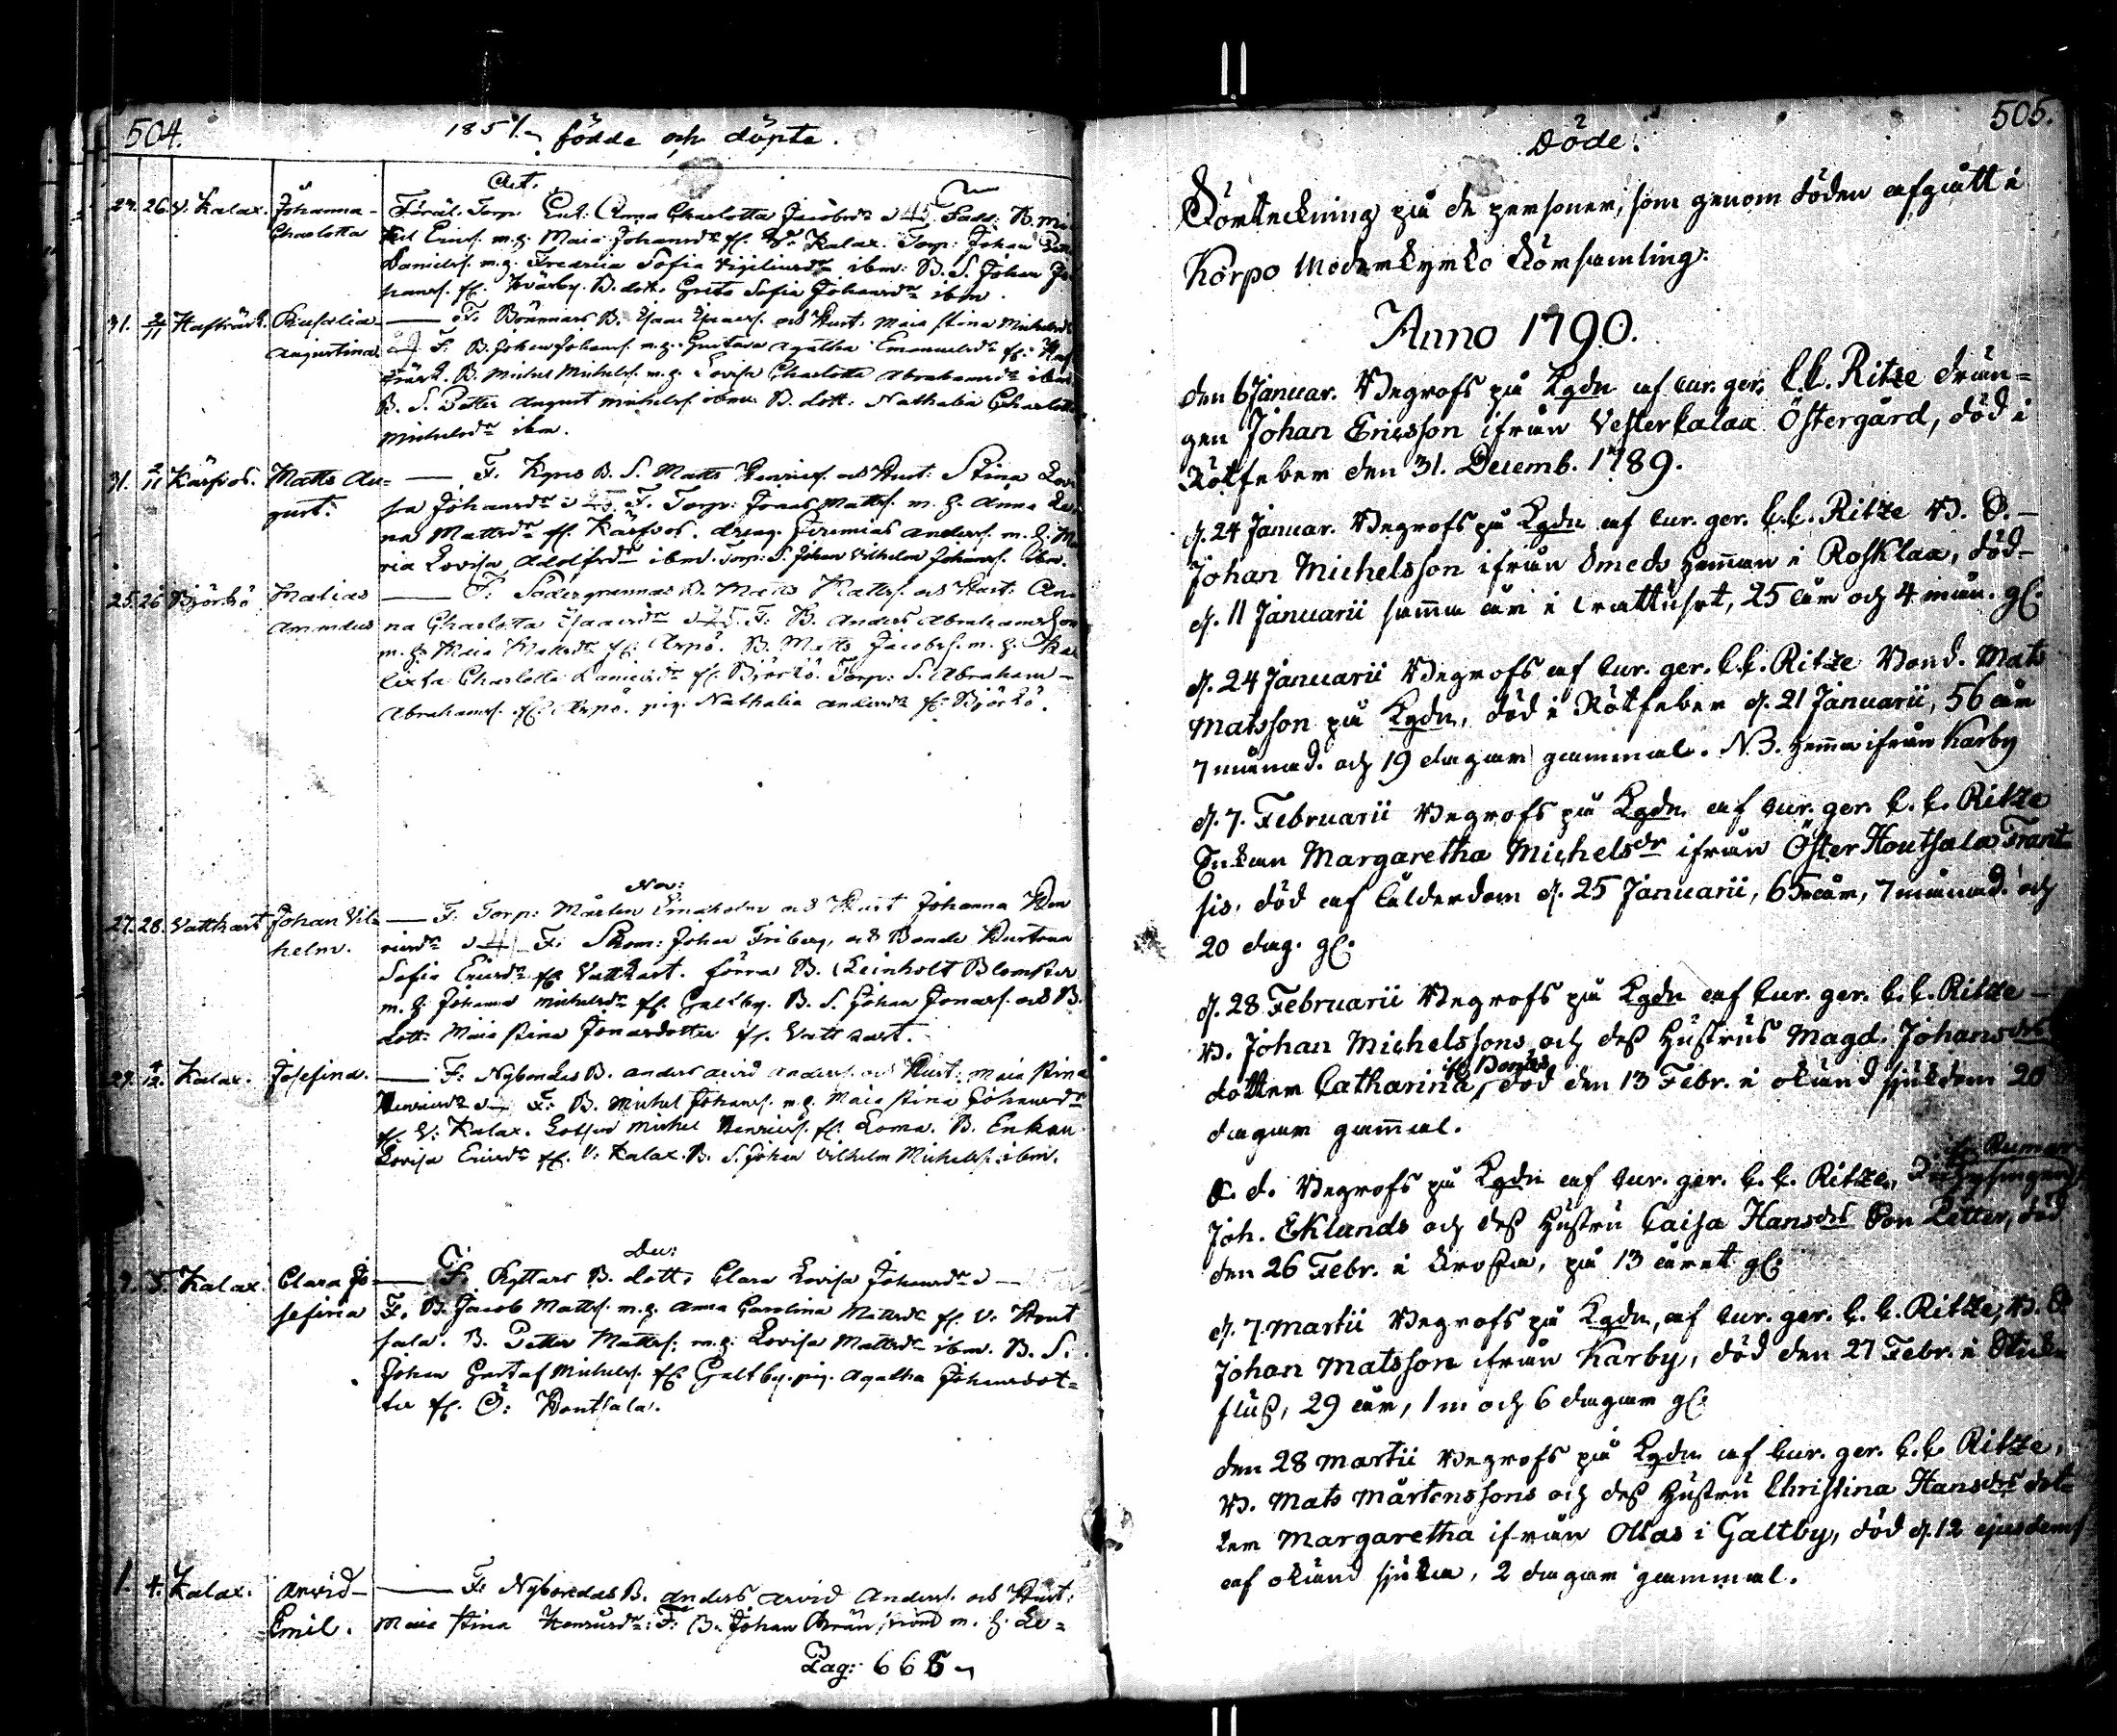 504.
1851. födde och döpte.
Oct.
27. 26. V. Kalax. Johanna Charlotta
Föräl. Torp. Enk: Anna Charlotta Jacobsdr 45. Fadd: B. Mi
kel Ericss. m. h. Maia Johansdr fr. V. Kalax. Torp: Johan
Daniels. m. h. Fredrica Sofia Vigiliusdr ibm: B. S. Johan Jo
hanss. fr. B. dott. Greta Sofia Johansdr ibm.
31. 2/11 Rusalia Augustina
F. Bönnars B. Isaac Isaacs. och Hust. Maia Stina Michelsdr
29 F: B. Johan Johanss. m. h. Gustava Agatha Emanuelsdr fr.
B. Michel Michels. m. h. Lovisa Charlotta Abrahamsdr ibm
B. S. Petter August Michels. ibm. B. dott: Nathalia Charlotta
Michelsdr ibm.
31. 2/11 Kärfvos. Matts Au=
gust.
F. B. S. Matts Henrics. och Hust: Stina Lovi
sa Johansdr 25 F. Torp: Jonas Matts. m. h. Anna
na Mattsdr fr. Kärfvos. dreng. Jeremias Anders. m. h. Ma
ria Lovisa Adolfsdr ibm. Torp: S. Johan Vilhelm Johanss. ibm.
25. 26 Björkö Amandus
F: Södergrannas B. Matts Matts. och Hust: An
na Charlotta Isaacsdr 25. F: B. Anders Abrahamsson
m. h. Maia Matsdr fr. Arpö. B. Matts Jacobs. m. h.
lixta Charlotta Danielsdr fr. Björkö. Torp: S. Abraham
Abrahams. fr. Arpö. pig. Nathalia Andersdr fr: Björkö.
Nov:
27. 28. Vattkast Johan Vil=
helm.
F: Torp: Mårten Einaholm och Hust Johanna Hen
ricsdr 41 F: Skom: Johan Friberg, och Bonde Hustrun
Sofia Ericsdr fr Vattkast. förra B. Reinholt Blomster
m. h. Johanna Michelsdr fr. Galtby. B. S. Johan Jonas. och B.
dott: Maia Stina Jonasdotter fr. Vattkast.
29. 1/12. Kalax. Josefina.
F: Nybondas B. Anders Arvid Anders. och Hust: Maia Stina
Henricsdr F: B. Michel Johans. m. h. Maia Stina Johansdr
fr. V: Kalax. Lotsen Michel Henrics. fr. Loma. B. Enkan
Lovisa Ericsdr fr. V: Kalax. B. S. Johan Vilhelm Michels. ibm.
Dec:
5. Kalax. Clara Jo
sefina
F: Ryttars B. dott: Clara Lovisa Johansdr
F. B. Jacob Matts. m. h. Anna Carolina Mattsdr fr. V. Hout
sala. B. Petter Matts. m. h. Lovisa Mattsdr ibm. B. S.
Johan Gustaf Michels. fr. Galtby. pig. Agatha Johansdot=
ter fr. Ö: Houtsala.
1. 4. Kalax. Arvid
Emil.
F: Nybondas B. Anders Arvid Anders. och Hust:
Maia Stina Henricsdr: F: B. Johan m. h. Lo=
Pag: 665
505.
Döde.
Förteckning på de personer, som genom döden afgått i
Korpo Moderkyrko Församling.
Anno 1790.
den 6 Januar. Begrofs på Kgdn af Cur. ger. C.C. Ritze drän=
gen Johan Ericsson ifrån Vesterkalax Östergård, död i
Rötfeber den 31. Decemb. 1789.
d. 24 Januar. Begrofs på Kgdn af Cur. ger. C.C. Ritze B. S.
Johan Michelsson ifrån Smeds heman i Rosklax, död
d. 11 Januarii samma år i Bråttust, 25 år och 4 mån. gl.
d. 24 Januarii Begrofs af Cur. ger. C.C. Ritze Bond. Mats
Matsson på Kgdn, död i Rötfeber d. 21 Januarii, 56 år
7 månad. och 19 dagar gammal. N.B. hema ifrån Karby
d. 7. Februarii Begrofs på Kgdn af Cur. ger. C.C. Ritze
Enkan Margaretha Michelsdr ifrån Öster Houtsala Frant
sis. död af ålderdom d. 25 Januarii, 65 år, 7 månad. och
20 dag. gl.
d. 28 Februarii Begrofs på Kgdn af Cur. ger. C.C. Ritze
B. Johan Michelssons och dess Hustrus Magd. Johansdrs
dotter Catharina, död den 13 Febr. i okänd sjukdom 20
dagar gammal.
E. d. Begrofs på Kgdn af Cur. ger. C.C. Ritze,
Joh. Eklunds och dess Hustru Caisa Hansdrs Son Petter, död
den 26 Febr. i Trosen, på 13 året gl.
d. 7 Martii Begrofs på Kgdn, af Cur. ger. C.C. Ritze, B. S.
Johan Matsson ifrån Karby, död den 27 Febr. i Stick
fluss, 29 år, 1 m och 6 dagar gl.
den 28 Martii Begrofs på Kgdn af Cur. ger. C.C. Ritze,
B. Mats Mårtenssons och dess Hustru Christina Hansdrs dot=
ter Margaretha ifrån Ollas i Galtby, död d. 12 ejusdem
af okänd sjuka, 2 dagar gammal.